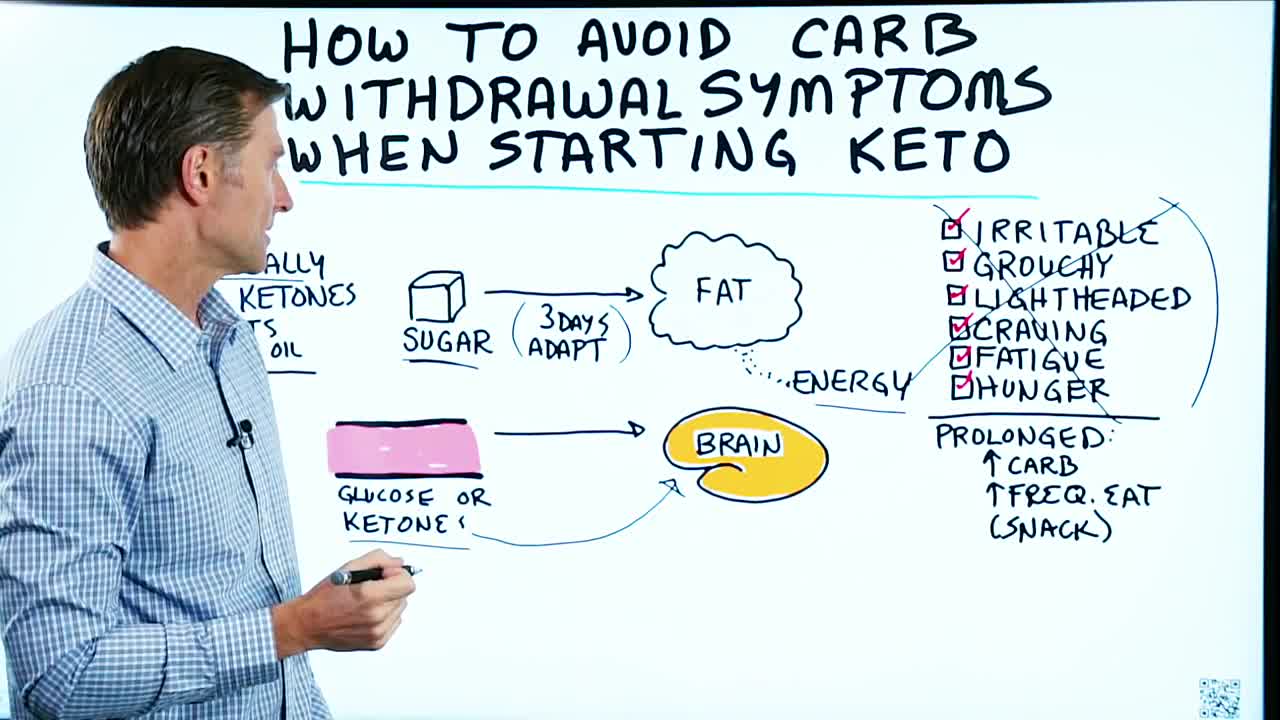 HOW TO AVOID CARB
WITHDRAWAL SYMPTOMS
WHEN STARTING KETO
KETONES
OIL
SUGAR
3 DAYS
ADAPT
FAT
ENERGY
IRRITABLE
GROUCHY
LIGHTHEADED
CRAVING
FATIGUE
HUNGER
GLUCOSE OR
KETONES
BRAIN
PROLONGED:
↑ CARB
↑ FREQ. EAT
(SNACK)